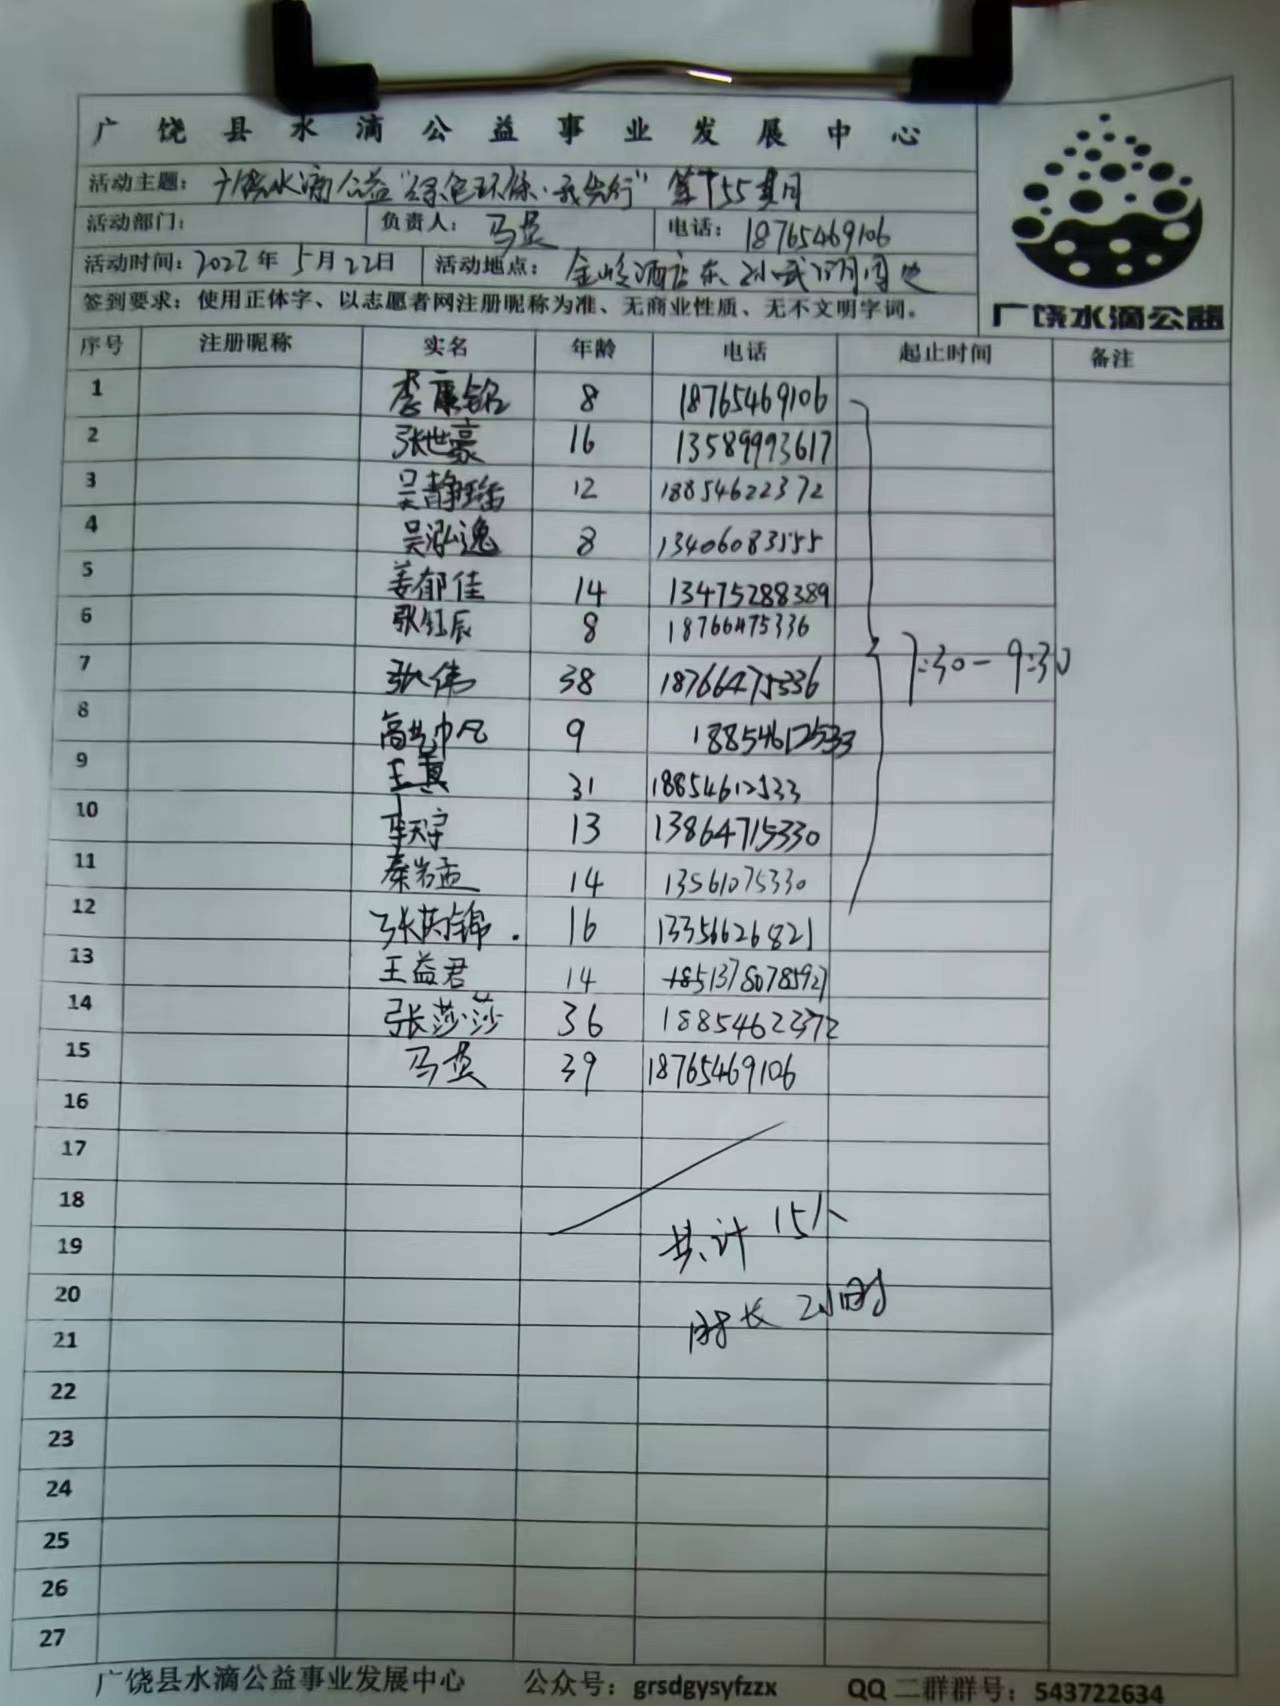 广饶县水滴公益事业发展中心
活动主题：广饶水滴公益“绿色环保·我先行”第155期
活动部门： 负责人：马 电话：18765469106
活动时间：2022年5月22日 活动地点：金岭酒店东孙武
签到要求：使用正体字、以志愿者网注册昵称为准、无商业性质、无不文明字词。
广饶水滴公益
序号 注册昵称 实名 年龄 电话 起止时间 备注
1 李康铭 8 18765469106
2 张世豪 16 13589993617
3 吴静瑶 12 18854622372
4 吴泓逸 8 13406083155
5 姜郁佳 14 13475288389
6 张钰辰 8 18766475336
7 张伟 38 18766475336 7:30-9:30
8 高 9 18854612533
9 王真 31 18854612533
10 李天宇 13 13864715330
11 秦 14 13561075330
12 张 锦 16 13356626821
13 王益君 14
14 张莎莎 36 18854622372
15 马 39 18765469106
16
17
18
共计15人
19
20
时长2小时
21
22
23
24
25
26
27
广饶县水滴公益事业发展中心 公众号：grsdgysyfzzx QQ二群群号：543722634